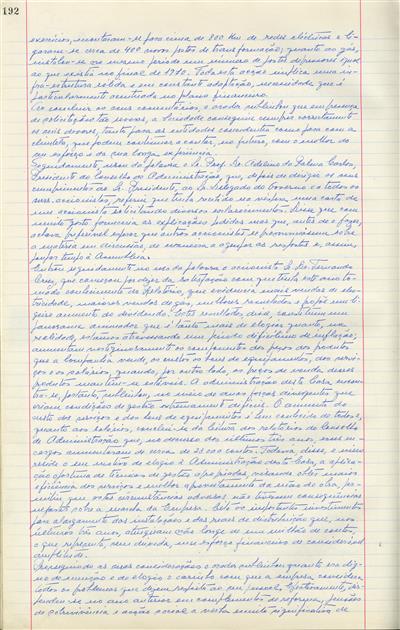 192
exercícios, montaram-se para cima de 800 Km de redes eléctricas e li-
garam-se cerca de 400 novos postos de transformação; quanto ao gás,
instalou-se no mesmo período um número de postos depressores igual
ao que existia no final de 1970. Toda esta acção implica uma in-
fra-estrutura sólida e em constante adaptação, necessidade que é
particularmente acentuada no plano financeiro.
Ao concluir os seus comentários, o orador sublinhou que em presença
de solicitações tão novas, a Sociedade conseguiu cumprir correctamente
os seus deveres, tanto para as entidades concedentes como para com a
clientela, que podem continuar a contar, no futuro, com o melhor do
seu esforço e da sua longa experiência.
Seguidamente, usou da palavra o Sr. Prof. Dr. Adelino da Palma Carlos,
Presidente do Conselho de Administração, que, depois de dirigir os seus
cumprimentos ao Sr. Presidente, ao Sr. Delegado do Governo e a todos os
Srs. accionistas, referiu que tinha recebido na véspera, uma carta de
um accionista solicitando diversos esclarecimentos. Disse que com
muito gosto forneceria as explicações pedidas mas que, antes de o fazer,
achava preferível esperar que outros accionistas se pronunciassem sobre
a matéria em discussão, de maneira a agrupar as respostas e, assim,
poupar tempo à Assembleia.
Entrou seguidamente no uso da palavra o accionista Sr. Dr. Fernando
Cruz, que começou por dizer da satisfação com que tinha
tomado conhecimento do Relatório, que evidencia mais vendas de elec-
tricidade, maiores vendas de gás, melhores resultados e propõe um li-
geiro aumento do dividendo. Estes resultados, disse, constituem um
panorama animador que é tanto mais de elogiar quanto, na
realidade, estamos atravessando um período dificílimo de inflação;
aumentam vertiginosamente os componentes dos preços dos produtos
que a Companhia vende, os custos dos bens de equipamentos, dos servi-
ços e os salários, quando, por outro lado, os preços de venda desses
produtos mantêm-se estáveis. A administração desta Casa encon-
tra-se, portanto, sublinhou, no meio de duas forças divergentes que
criam condições de gestão extremamente difíceis. O aumento do
custo dos serviços e dos bens de equipamentos é bem conhecido de todos;
quanto aos salários, conclui-se da leitura dos relatórios do Conselho
de Administração que, no decurso dos últimos três anos, esses en-
cargos aumentaram de cerca de 23 000 contos. Todavia, disse, e nisso
reside o seu motivo de elogio à Administração desta Casa, a aplica-
ção oportuna de técnicas de gestão apropriadas, visando obter maior
eficiência dos serviços e melhor aproveitamento da mão de obra, per-
mitiu que estas circunstâncias adversas não tivessem consequências
nefastas sobre a marcha da Empresa. Cita os importantes investimentos
para alargamento das instalações e das redes de distribuição que, nos
últimos três anos, atingiram não longe de um milhão de contos,
o que representa, sem dúvida, um esforço financeiro de considerável
amplitude.
Prosseguindo as suas considerações o orador sublinhou quanto era dig-
no de menção e de elogio o carinho com que a empresa considera
todos os problemas que dizem respeito ao seu pessoal. Efectivamente, des-
pendeu-se no ano anterior em complementos de reforma, pensões
de sobrevivência e acção social a verba muito significativa de